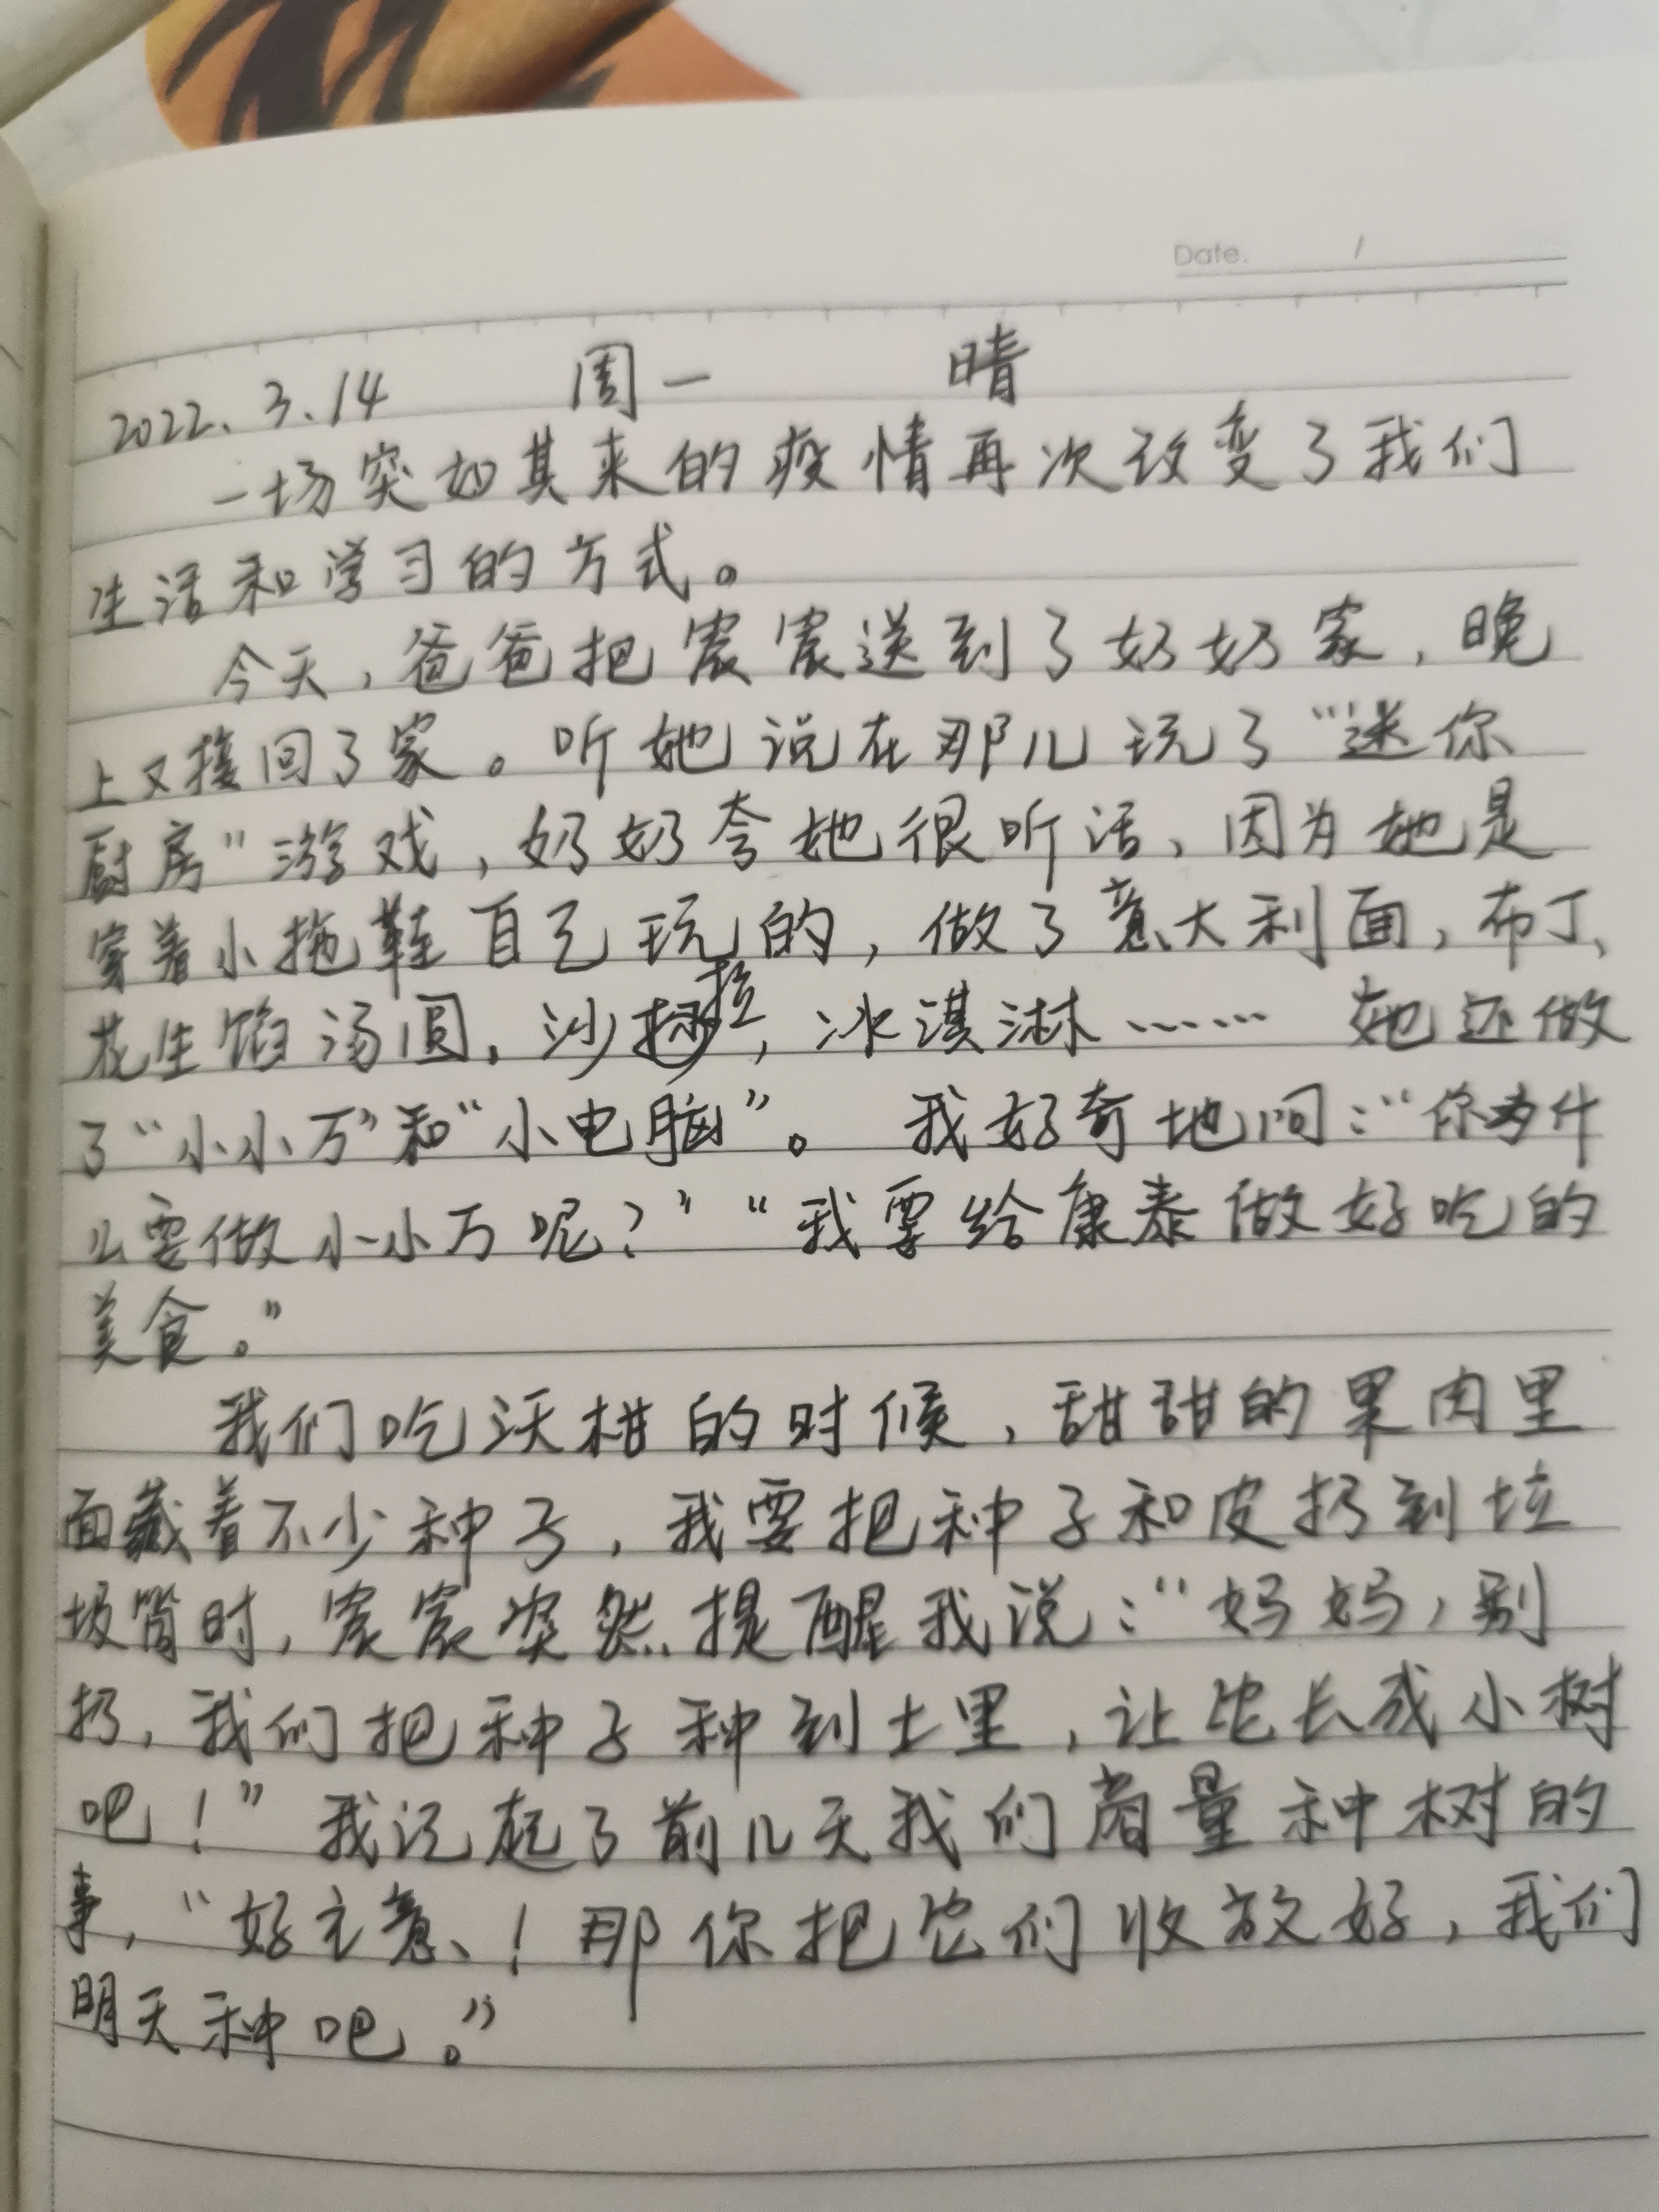 Date. /
2022.3.14 周一 晴
一场突如其来的疫情再次改变了我们
生活和学习的方式。
今天，爸爸把宸宸送到了奶奶家，晚
上又接回了家。听她说在那儿玩了“迷你
厨房”游戏，奶奶夸她很听话，因为她是
穿着小拖鞋自己玩的，做了意大利面，布丁、
花生馅汤圆，沙拉，冰淇淋…… 她还做
了“小小万”和“小电脑”。我好奇地问：“你为什
么要做小小万呢？”“我要给康泰做好吃的
美食。”
我们吃沃柑的时候，甜甜的果肉里
面藏着不少种子，我要把种子和皮扔到垃
圾筒时，宸宸突然提醒我说：“妈妈，别
扔，我们把种子种到土里，让它长成小树
吧！”我记起了前几天我们商量种树的
事，“好主意！那你把它们收放好，我们
明天种吧。”